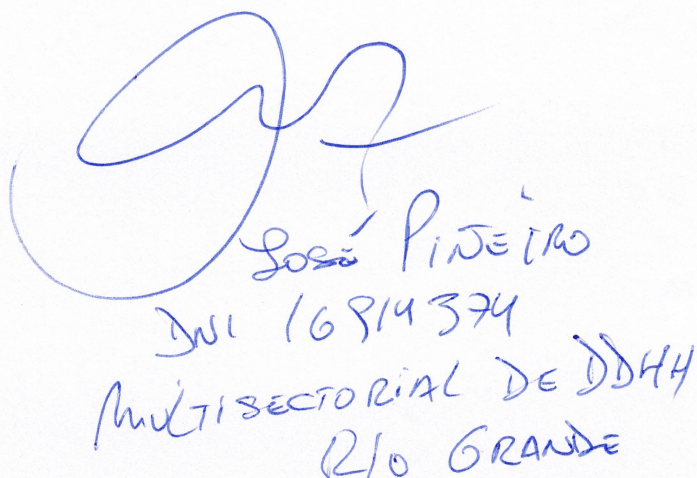 José Piñeiro
DNI 16914374
MULTISECTORIAL DE DDHH
RIO GRANDE